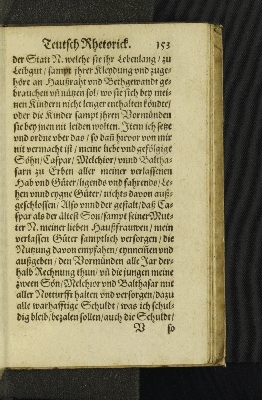 Teutsch Rhetorick. 153
der Statt N. welche sie ihr Lebenlang / zu
Leibgut / sampt jhrer Kleydung vnd zuge-
hört an Haußraht vnd Bethgewandt ge-
brauchen vñ nützen sol / wo sie sich bey mei-
nen Kindern nicht lenger enthalten köndte /
oder die Kinder sampt jhren Vormünden
sie bey jnen nit leiden wolten. Item ich setze
vnd ordne vber das / so dañ hievor von mir
nit vermacht ist / meine liebe vnd gefölgige
Söhn / Caspar / Melchior / vnnd Baltha-
sarn zu Erben aller meiner verlassenen
Hab vnd Güter / ligends vnd fahrends / Le-
hen vnnd eygne Güter / nichts davon auß-
geschlossen / Also vnnd der gestalt / daß Ca-
spar als der ältest Son / sampt seiner Mut-
ter N. meiner lieben Haußfrauwen / mein
verlassen Güter samptlich versorgen / die
Nutzung davon empfahen / eynnemen vnd
außgeben / den Vormünden alle Jar der-
halb Rechnung thun / vñ die jungen meine
zween Sön / Melchior vnd Balthasar mit
aller Notturfft halten vnd versorgen / dazu
alle warhafftige Schuldt / was ich schul-
dig bleib / bezalen sollen / auch die Schuldt /
V so